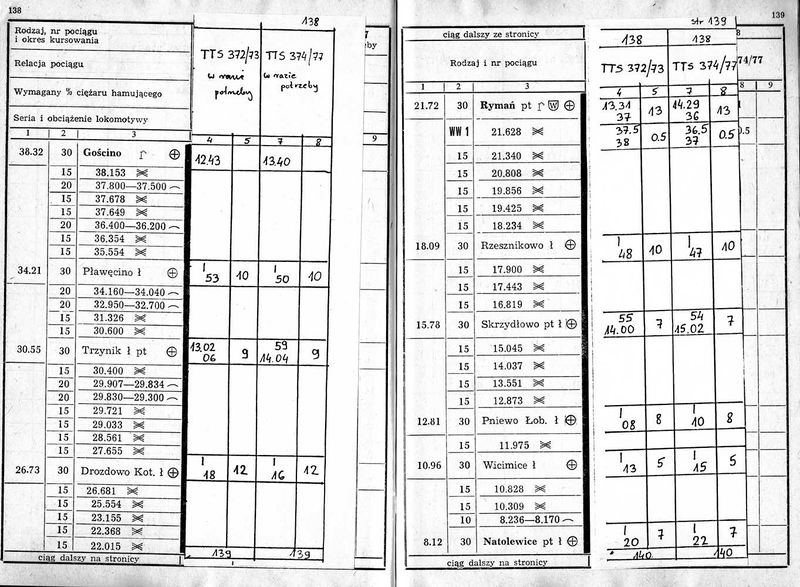 138
138
Rodzaj, nr pociągu
i okres kursowania
Relacja pociągu
Wymagany % ciężaru hamującego
Seria i obciążenie lokomotywy
TTS 372/73 TTS 374/77
w razie potrzeby w razie potrzeby
7
eby
1 2 3 4 5 7 8 9
38.32 30 Gościno 12.43 13.40
15 38.153
20 37.800—37.500
15 37.678
15 37.649
20 36.400—36.200
15 36.354
15 35.554
34.21 30 Pławęcino ł | 53 10 | 50 10
20 34.160—34.040
20 32.950—32.700
15 31.326
15 30.600
30.55 30 Trzynik ł pt 13.02 06 9 59 14.04 9
15 30.400
20 29.907—29.834
20 29.830—29.300
15 29.721
15 29.033
15 28.561
15 27.655
26.73 30 Drozdowo Kot. ł | 18 12 | 16 12
15 26.681
15 25.554
15 23.155
15 22.368
15 22.015
ciąg dalszy na stronicy 139 139
str 139
139
ciąg dalszy ze stronicy 138 138
8
Rodzaj i nr pociągu TTS 372/73 TTS 374/77
74/77
1 2 3 4 5 7 8 8 9
21.72 30 Rymań pt W 13.31 37 13 14.29 36 13
WW 1 21.628 37.5 38 0.5 36,5 37 0.5
0.5
15 21.340
15 20.808
15 19.856
15 19.425
15 18.234
18.09 30 Rzesznikowo ł | 48 10 | 47 10
15 17.900
15 17.443
15 16.819
15.78 30 Skrzydłowo pt ł 55 14.00 7 54 15.02 7
15 15.045
15 14.037
15 13.551
15 12.873
12.81 30 Pniewo Łob. ł | 08 8 | 10 8
15 11.975
10.96 30 Wicimice ł | 13 5 | 15 5
15 10.828
15 10.309
10 8.236—8.170
8.12 30 Natolewice pt ł | 20 7 | 22 7
ciąg dalszy na stronicy 140 140